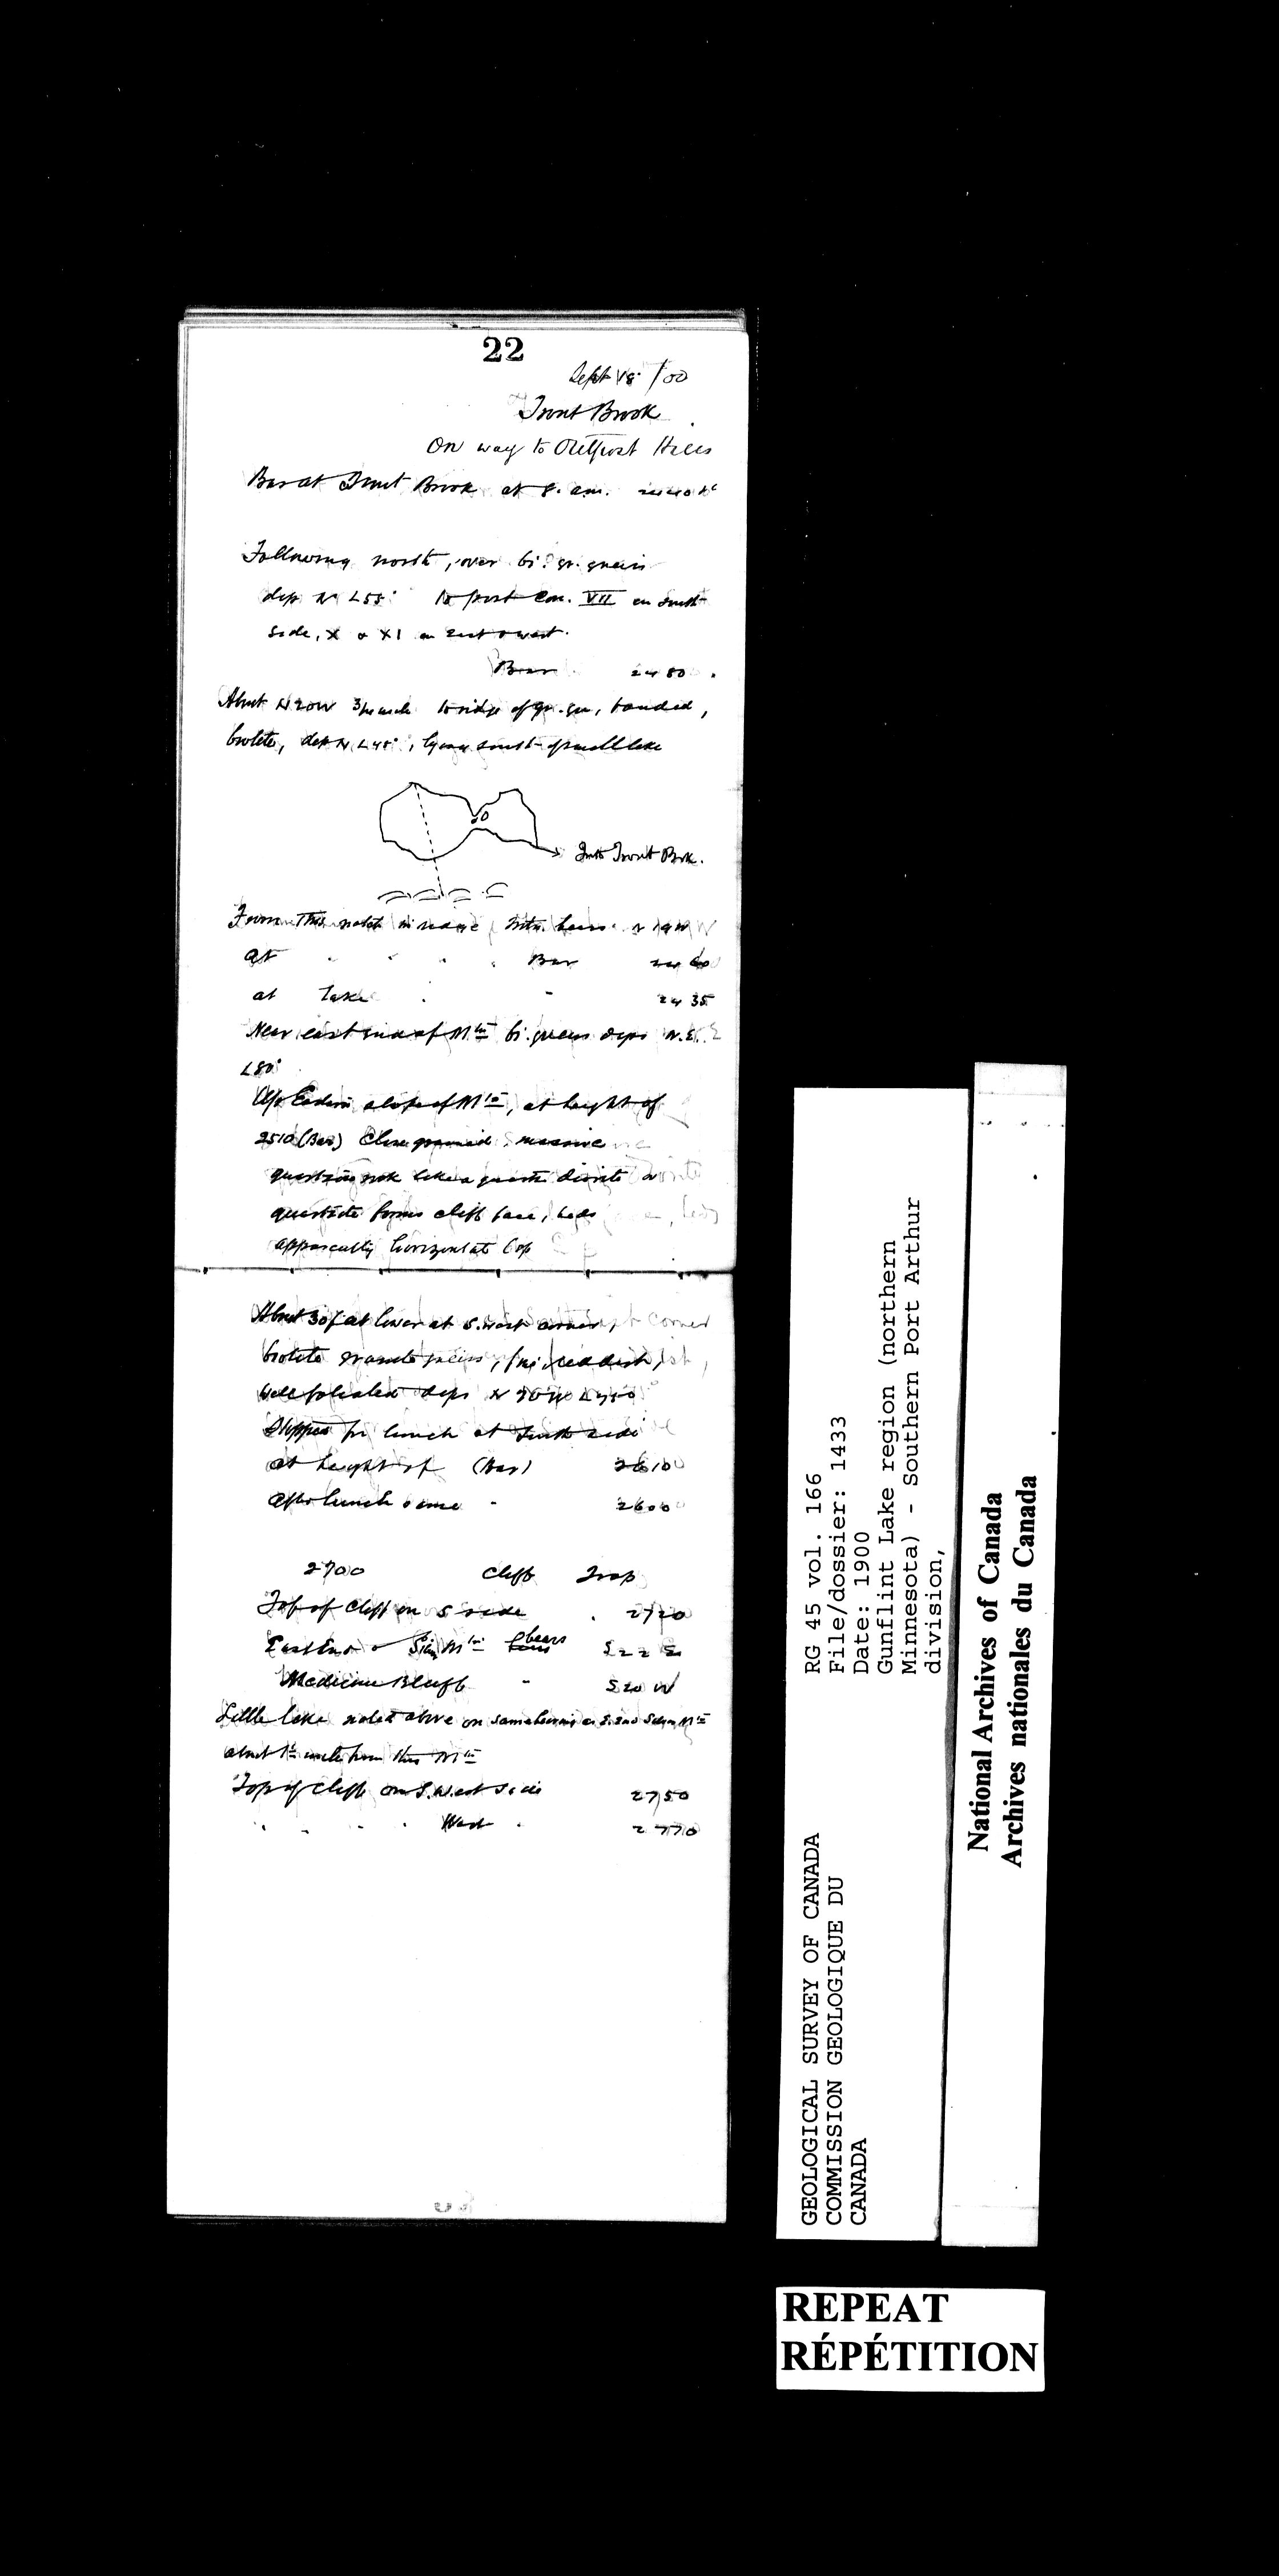 22
Sept 18 /00
Trout Brook
On way to Outpost Hills
Bar at Trout Brook at 8. am. 2440
Following north, over bi. gr. gneiss
dip N ∠55° to post Con. VII on south
side, X & XI on east & west.
Bar 2480
About N20W 3/4 mile to ridge of gr. gn, banded,
biolite, dip N ∠45°, lying south of small lake
Into Trout Brk.
From This notch in ridge, Mtn. bears N 19 W
at " " " " Bar 2460
at lake " " 2435
Near east end of Mtn bi. gneiss dips N.E.
∠80°
Up Eastern slope of Mtn, at height of
2510 (Bar) Close grained massive
rock like a quartz diorite or
quartzite forms cliff face, beds
apparently horizontal top
About 30 f at lower at S. west corner,
biolite granite gneiss, reddish,
well foliated dips N 70 W
Stopped for lunch at South side
at height of (Bar) 2610
After lunch same " 2600
2700 Cliff Trap
Top of Cliff on S side . 2720
East End Mtn bears S 22 E
Medicine Bluff " S 20 W
Little lake noted above on same bearing as
about mile from this Mtn
Top of cliff on S. West Side 2750
" " " " West " 2770
RG 45 vol. 166
File/dossier: 1433
Date: 1900
Gunflint Lake region (northern
Minnesota) - Southern Port Arthur
division,
GEOLOGICAL SURVEY OF CANADA
COMMISSION GEOLOGIQUE DU
CANADA
National Archives of Canada
Archives nationales du Canada
REPEAT
RÉPÉTITION